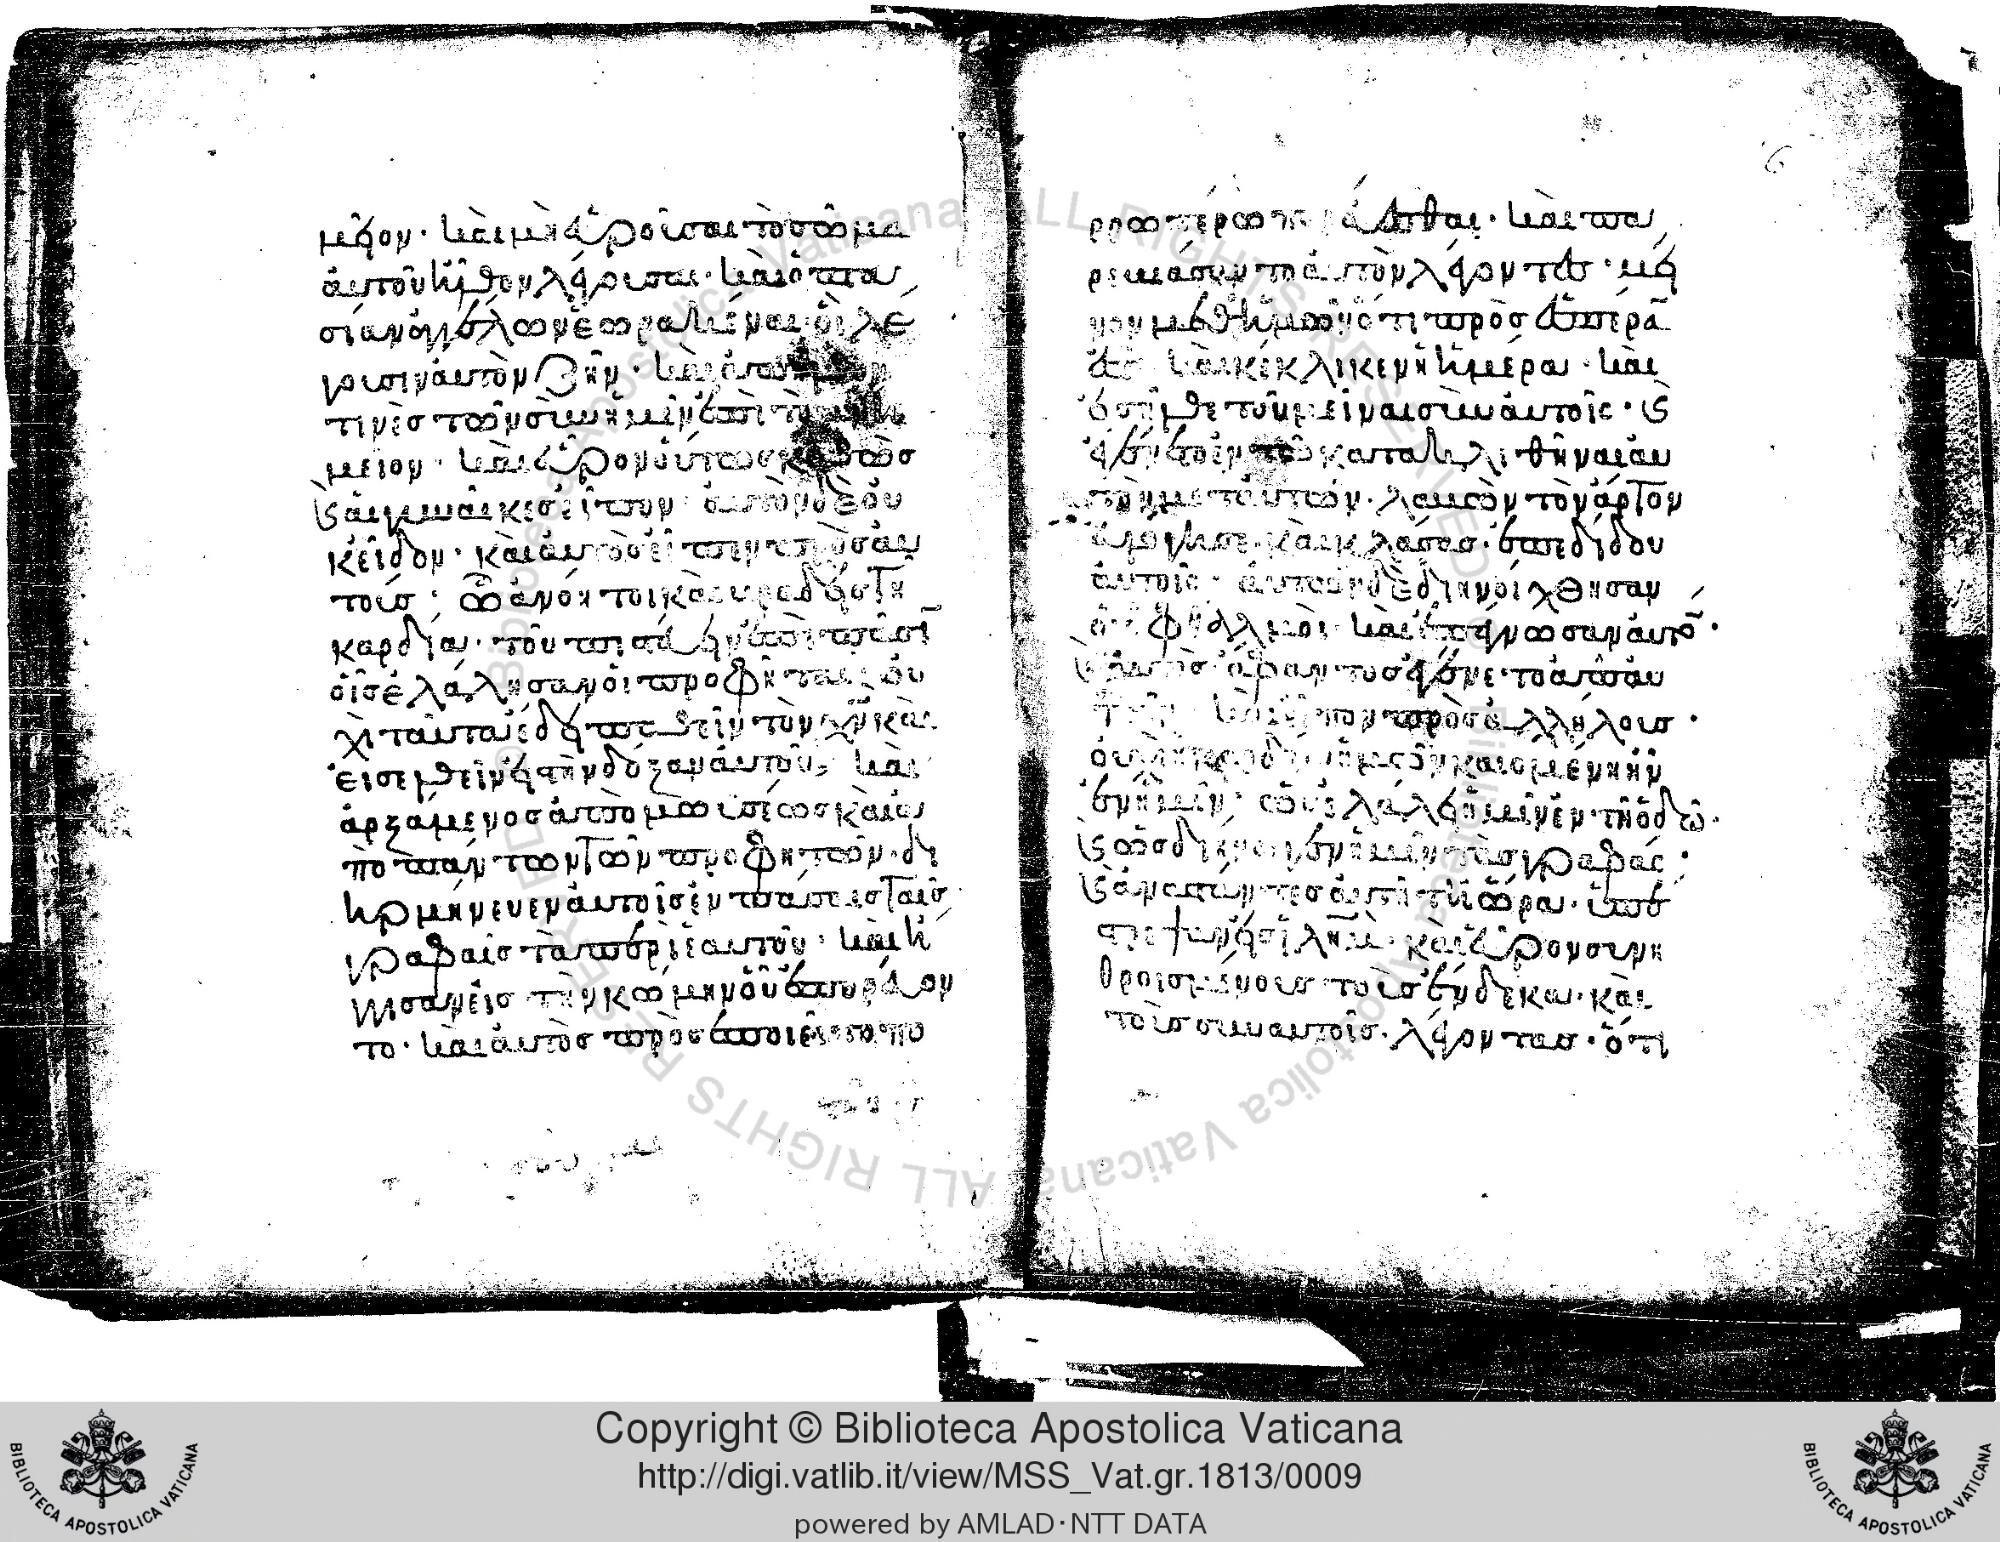 μεῖον· καὶ μὴ εὑροῦσαι τὸ σῶμα
αὐτοῦ ἦλθον λέγουσαι· καὶ ὀπτα
σίαν ἀγγέλων ἑωρακέναι· οἳ λέ
γουσιν αὐτὸν ζῆν· καὶ ἀπῆλθον
τινὲς τῶν σὺν ἡμῖν ἐπὶ τὸ μνη
μεῖον· καὶ εὗρον οὕτως καθὼς
καὶ αἱ γυναῖκες εἶπον· αὐτὸν δὲ οὐ
κ εἶδον· καὶ αὐτὸς εἶπεν πρὸς αὐ
τούς· ὦ ἀνόητοι καὶ βραδεῖς τῆ
καρδία· τοῦ πιστεύειν ἐπὶ πᾶσι
οἷς ἐλάλησαν οἱ προφῆται· οὐ
χὶ ταῦτα ἔδει παθεῖν τὸν χν καὶ
εἰσελθεῖν εἰς τὴν δόξαν αὐτοῦ; καὶ
ἀρξάμενος ἀπὸ μωϋσέως καὶ ἀ
πὸ πάντων τῶν προφητῶν· δι
ηρμήνευεν αὐτοῖς ἐν πάσαις ταῖς
γραφαῖς τὰ περὶ ἑαυτοῦ· καὶ ἤ
γγισαν εἰς τὴν κώμην οὗ ἐπορεύον
το· καὶ αὐτὸς προσεποιεῖτο πο
ρρωτέρω πορεύεσθαι· καὶ πα
ρεβιάσαντο αὐτὸν λέγοντες· μεῖ
νον μεθ ἡμῶν ὅτι πρὸς ἑσπέραν
ἐστὶ καὶ κέκλικεν ἡ ἡμέρα· καὶ
εἰσῆλθε τοῦ μεῖναι σὺν αὐτοῖς· καὶ
ἐγένετο ἐν τῶ κατακλιθῆναι αὐ
τὸν μετ αὐτῶν· λαβὼν τὸν ἄρτον
εὐλόγησε· καὶ κλάσας· ἐπεδίδου
αὐτοῖς· αὐτῶν δὲ διηνοίχθησαν
οἱ ὀφθαλμοὶ· καὶ ἐπέγνωσαν αὐτόν·
καὶ αὐτὸς ἄφαντος ἐγένετο ἀπ αὐ
τῶν· καὶ εἶπον πρὸς ἀλλήλους·
οὐχὶ ἡ καρδία ἡμῶν καιομένη ἦν
ἐν ἡμῖν· ὡς ἐλάλει ἡμῖν ἐν τῆ ὁδῶ·
καὶ ὡς διήνοιγεν ἡμῖν τὰς γραφάς;
καὶ ἀναστάντες αὐτῆ τῆ ὥρα· ὑπέ
στρεψαν εἰς ἱλημ· καὶ εὗρον συνη
θροισμένους τοὺς ἕνδεκα· καὶ
τοὺς σὺν αὐτοῖς· λέγοντας· ὅτι
6
Copyright © Biblioteca Apostolica Vaticana
http://digi.vatlib.it/view/MSS_Vat.gr.1813/0009
powered by AMLAD·NTT DATA
BIBLIOTECA APOSTOLICA VATICANA
BIBLIOTECA APOSTOLICA VATICANA